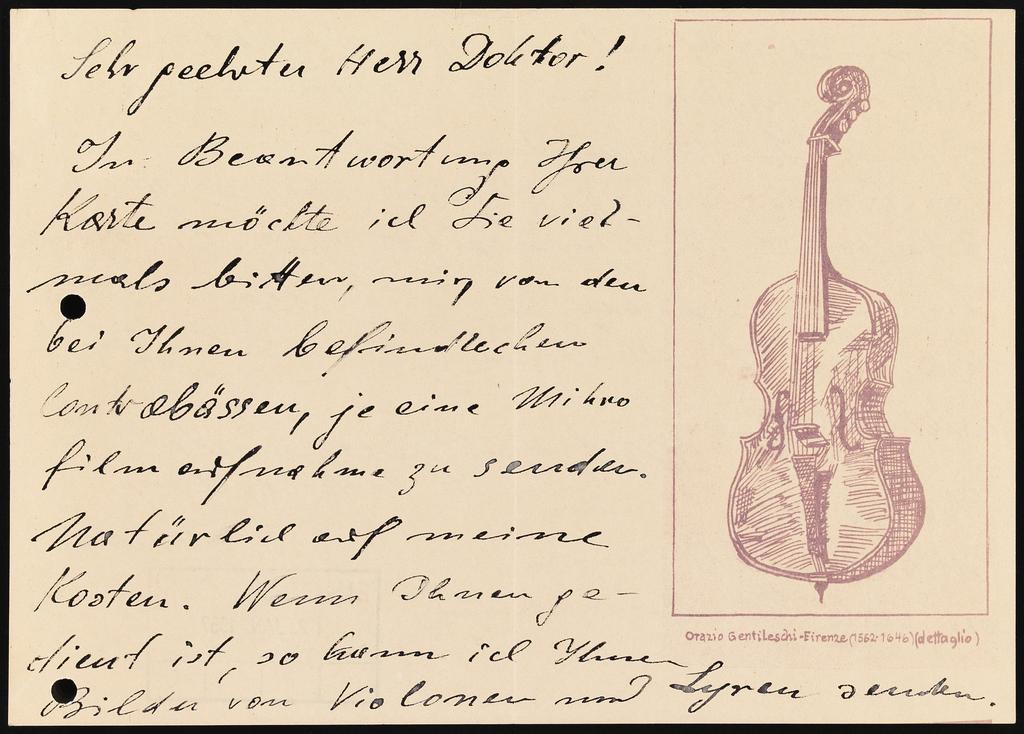 Sehr geehrter Herr Doktor!
In Beantwortung Ihrer
Karte möchte ich Sie viel-
mals bitten, mir von den
bei Ihnen befindlichen
Contrabässen, je eine Mikro
film aufnahme zu senden.
Natürlich auf meine
Kosten. Wenn Ihnen ge-
dient ist, so kann ich Ihnen
Bilder von Violonen und Lyren senden.
Orazio Gentileschi-Firenze (1562-1646) (dettaglio)